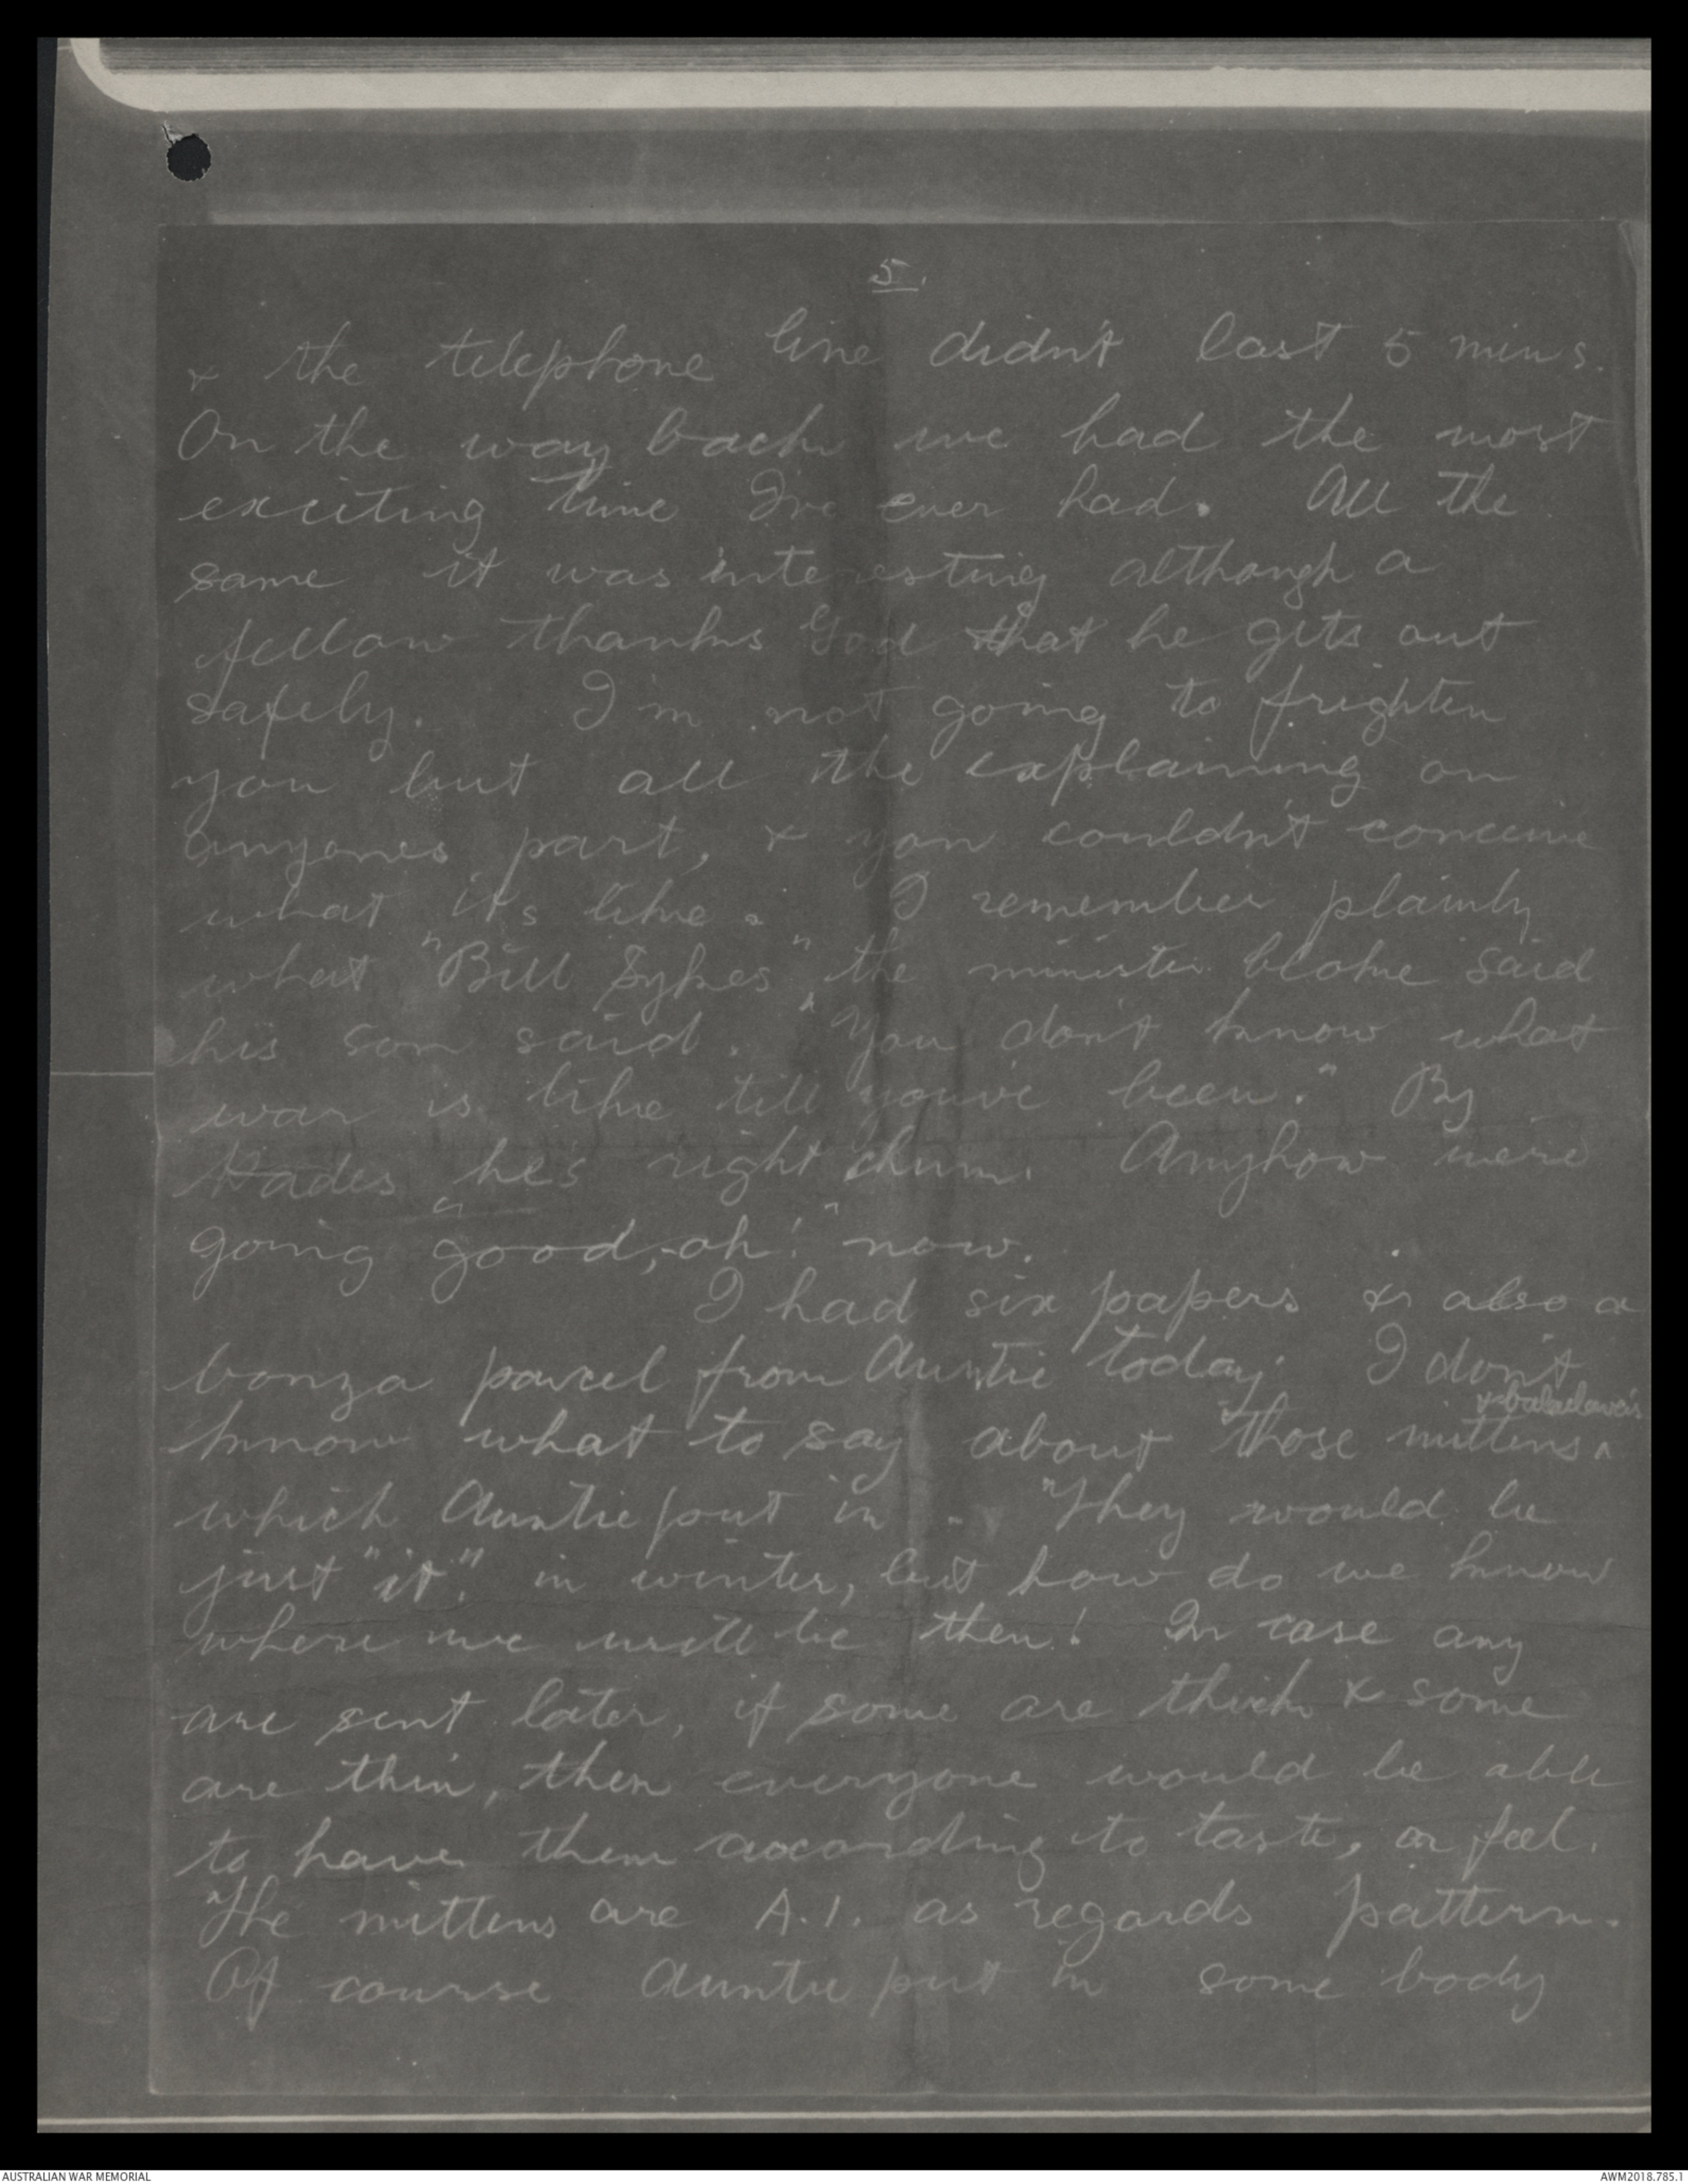 5.
& the telephone line didn't last 5 mins.
On the way back we had the most
exciting time I've ever had. All the
same it was interesting although a
fellow thanks God that he gets out
safely. I'm not going to frighten
you but all the explaining on
anyones part, & you couldn't conceive
what its like. I remember plainly
what "Bill Sykes" the minister bloke said
his son said. "You don't know what
war is like till you've been." By
Hades he's right chum. Anyhow we're
going "good,-oh!" now.
I had six papers & also a
bonza parcel from Auntie today. I don't
& balaclava's
know what to say about those mittens ^
which Auntie put in. They would be
just "it" in winter, but how do we know
where we will be then! In case any
are sent later, if some are thick & some
are thin, then everyone would be able
to have them according to taste, or feel.
The mittens are A.1. as regards pattern.
Of course Auntie put in some body
AUSTRALIAN WAR MEMORIAL
AWM2018.785.1